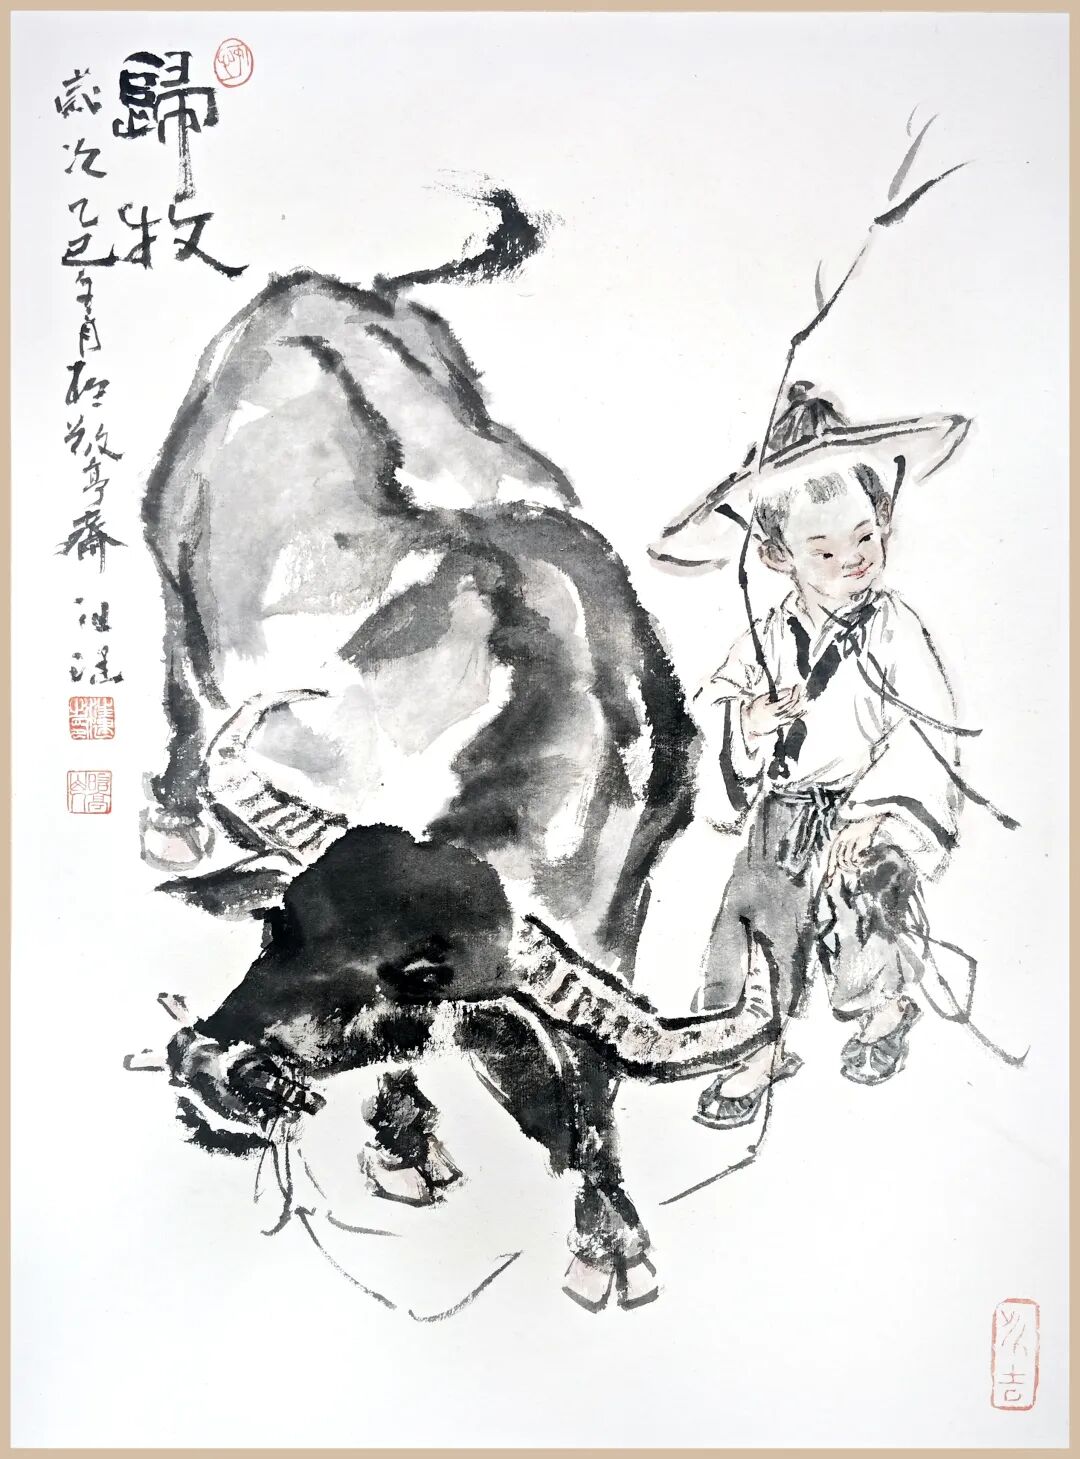 歸牧
歲次乙巳冬月於敬亭齋